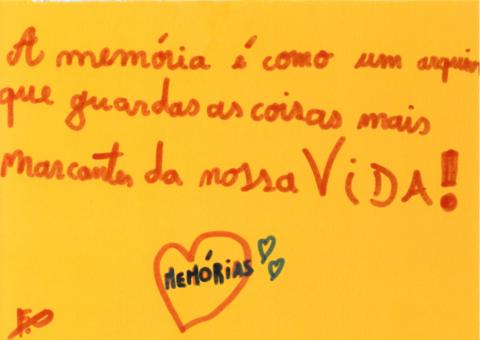 A memória é como um arquivo
que guardas as coisas mais
marcantes da nossa ViDA!
MEMÓRiAS